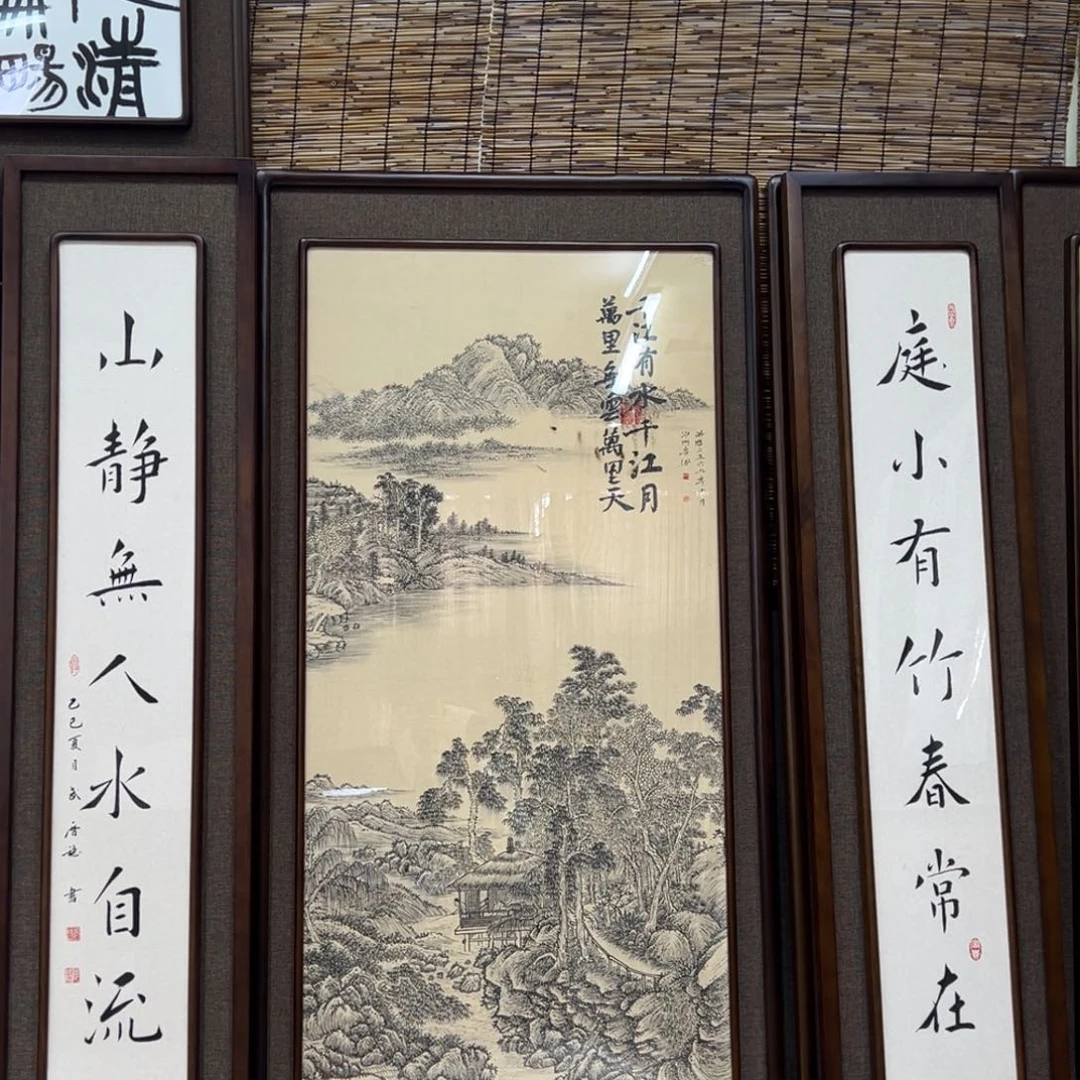 庭小有竹春常在
千江有水千江月
萬里無雲萬里天
山静無人水自流
乙巳夏月
書
清